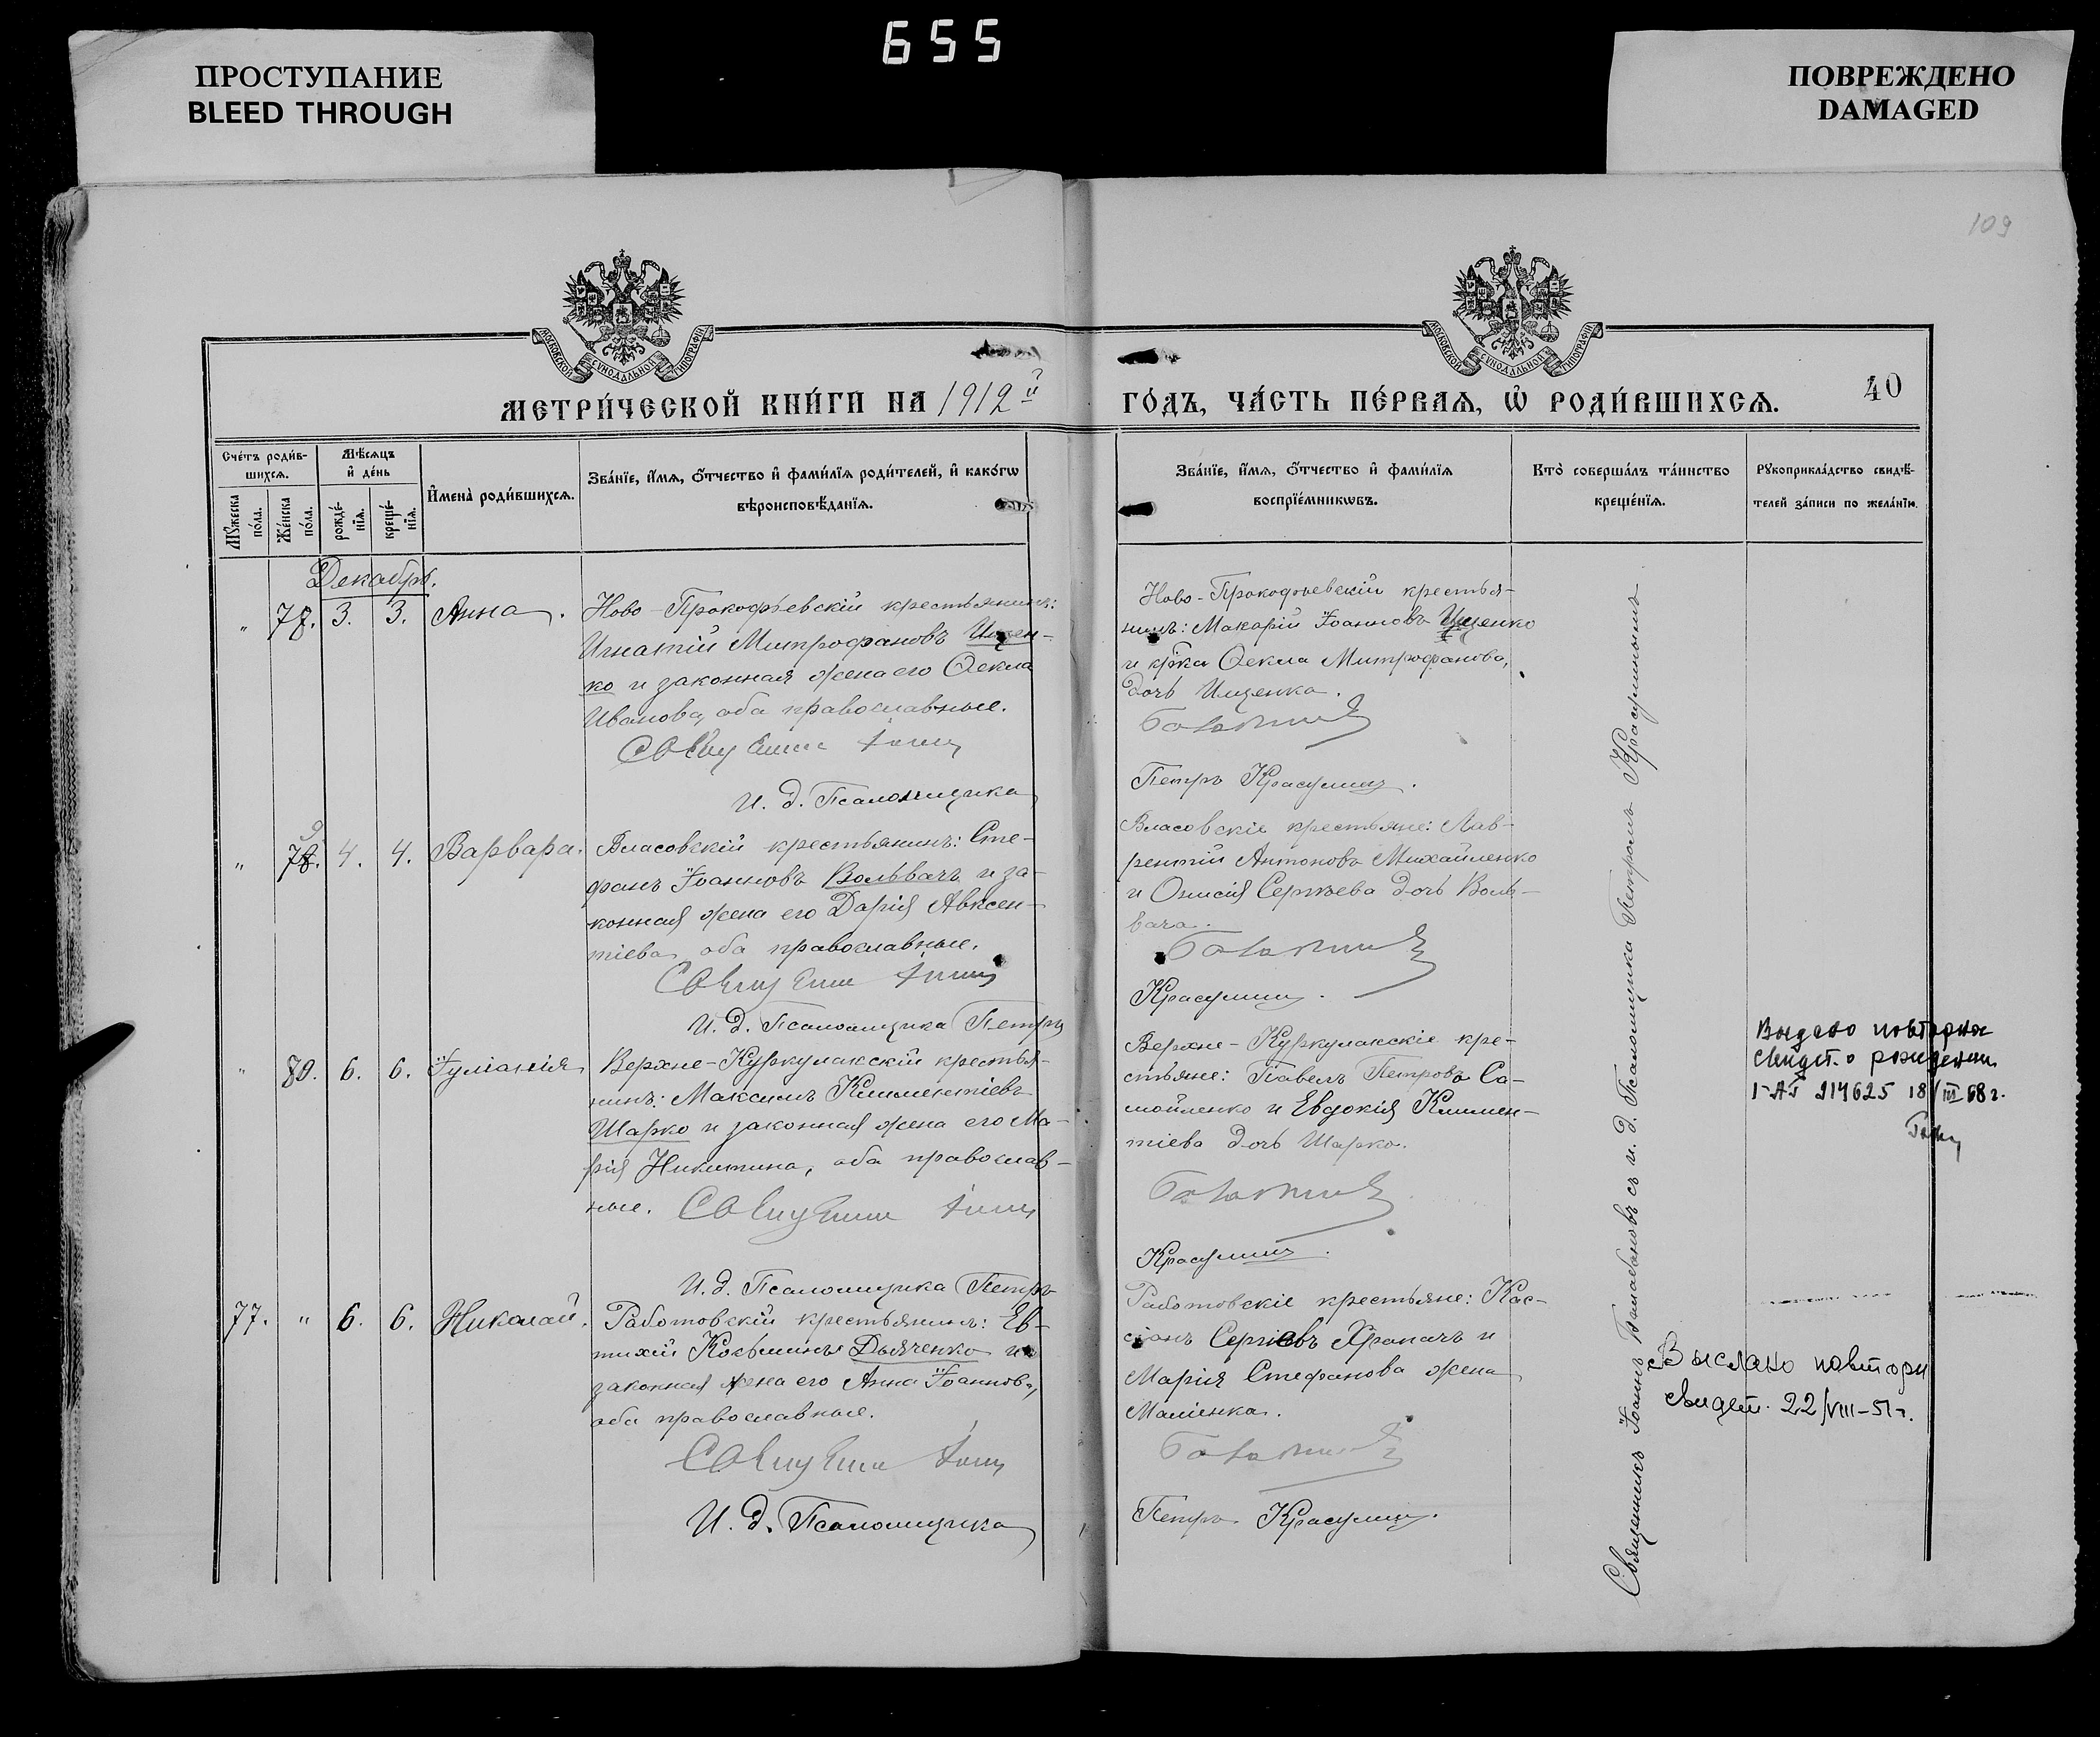 655
ПРОСТУПАНИЕ
BLEED THROUGH
ПОВРЕЖДЕНО
DAMAGED
109
МОСКОВСКОЙ СѴНОДАЛЬНОЙ ТИПОГРАФІИ
МОСКОВСКОЙ СѴНОДАЛЬНОЙ ТИПОГРАФІИ
МЕТРИ́ЧЕСКОЙ КНИ́ГИ НА 1912й
ГО́ДЪ, ЧА́СТЬ ПЕ́РВАѦ, Ѡ҆ РОДИ́ВШИХСѦ.
40
Сче́тъ роди́в-
шихсѧ.
Мꙋ́жеска
по́ла.
Же́нска
по́ла.
Мѣ́сѧцъ
и҆ де́нь
рожде́-
нїѧ.
креще́-
нїѧ.
И҆мена̀ роди́вшихсѧ.
Зва́нїе, и҆́мѧ, ѻ҆́тчество и҆ фами́лїѧ роди́телей, и҆ како́гѡ
вѣроисповѣ́данїѧ.
Зва́нїе, и҆́мѧ, ѻ҆́тчество и҆ фами́лїѧ
воспрїе́мникѡвъ.
Кто̀ соверша́лъ та́инство
креще́нїѧ.
Рꙋкоприкла́дство свидѣ́-
телей за́писи по жела́нїю.
Декабрь.
" 78. 3. 3. Анна.
Ново-Прокофьевскій крестьянинъ:
Игнатій Митрофановъ Ищен-
ко и законная жена его Ѳекла
Иванова, оба православные.
И. д. Псаломщика
Ново-Прокофьевскій крестья-
нинъ: Макарій Іоанновъ Ищенко
и кр-ка Ѳекла Митрофанова,
дочь Ищенка.
Петръ Красулинъ.
" 79. 4. 4. Варвара.
Власовскій крестьянинъ: Сте-
фанъ Іоанновъ Вольвачъ и за-
конная жена его Дарія Авксен-
тіева, оба православные.
И. д. Псаломщика Петръ
Власовскіе крестьяне: Лав-
рентій Антоновъ Михайленко
и Онисія Сергѣева дочь Воль-
вача.
Красулинъ.
" 80. 6. 6. Іуліанія
Верхне-Куркулакскій крестья-
нинъ: Максимъ Климентіевъ
Шарко и законная жена его Ма-
рія Никитина, оба православ-
ные.
И. д. Псаломщика Петръ
Верхне-Куркулакскіе кре-
стьяне: Павелъ Петровъ Са-
мойленко и Евдокія Климен-
тіева дочь Шарко.
Красулинъ.
77. " 6. 6. Николай.
Работовскій крестьянинъ: Ев-
тихій Козьминъ Дьяченко и
законная жена его Анна Іоаннова,
оба православные.
И. д. Псаломщика
Работовскіе крестьяне: Кас-
сіанъ Сергіевъ Храпачъ и
Марія Стефанова жена
Петръ Красулинъ.
Священникъ Іоаннъ съ и. д. Псаломщика Петромъ Красулинымъ
Выдано повторное
свидет. о рождении
I-АГ 214625 18/III 68 г.
Выслано повторн
свидет. 22/VIII-51 г.